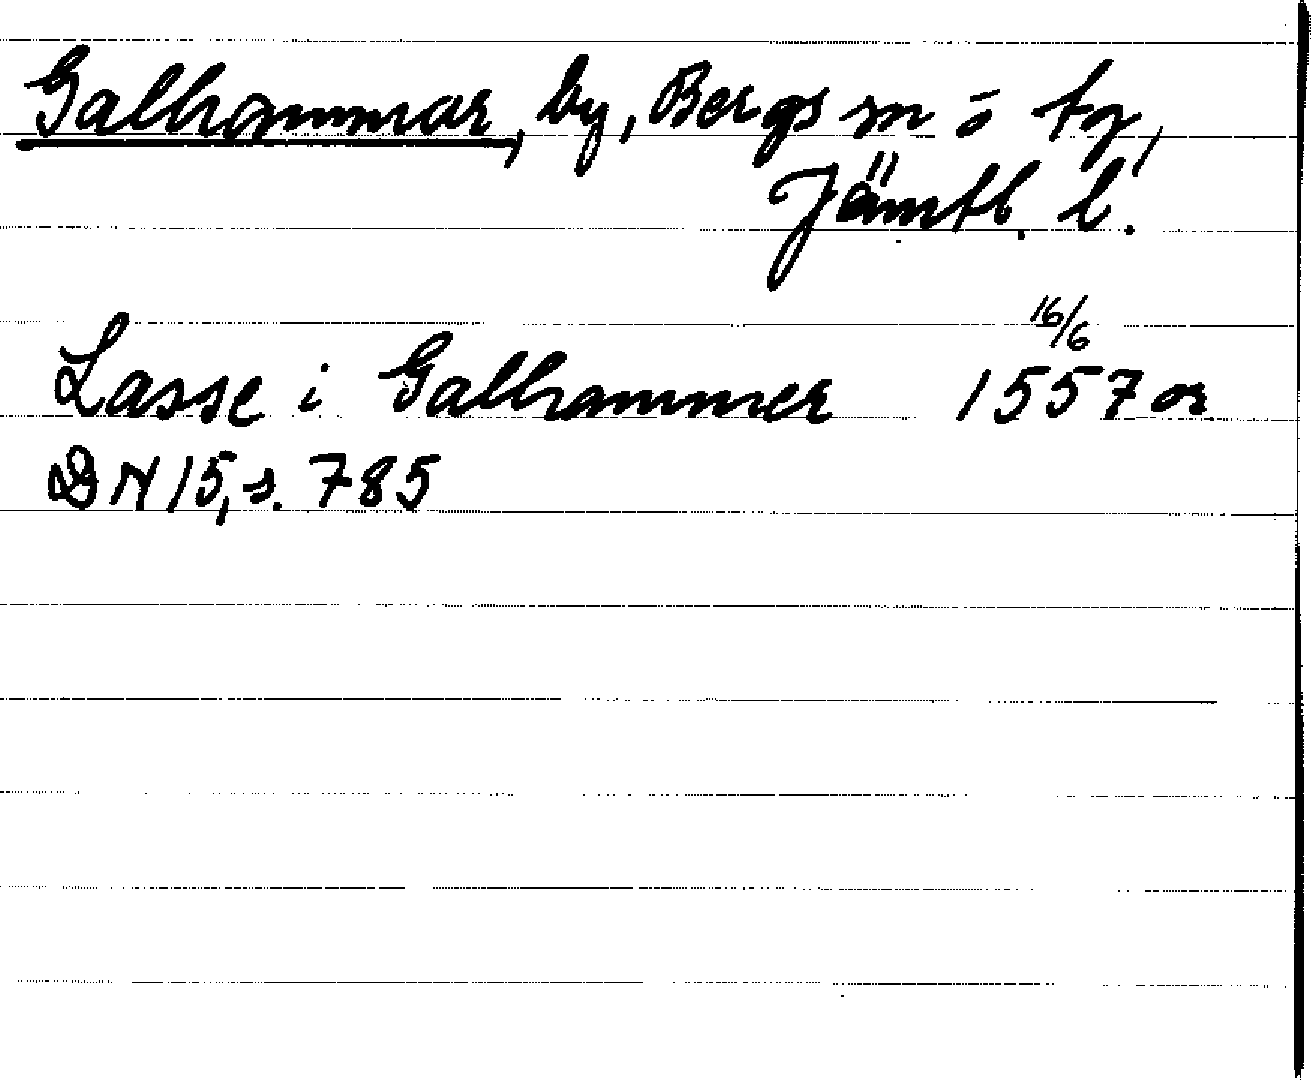 Galhammar, by, Bergs sn o tg,
Jämtl. l.
Lasse i Galhammer 16/6 1557 or
DN 15, s. 785